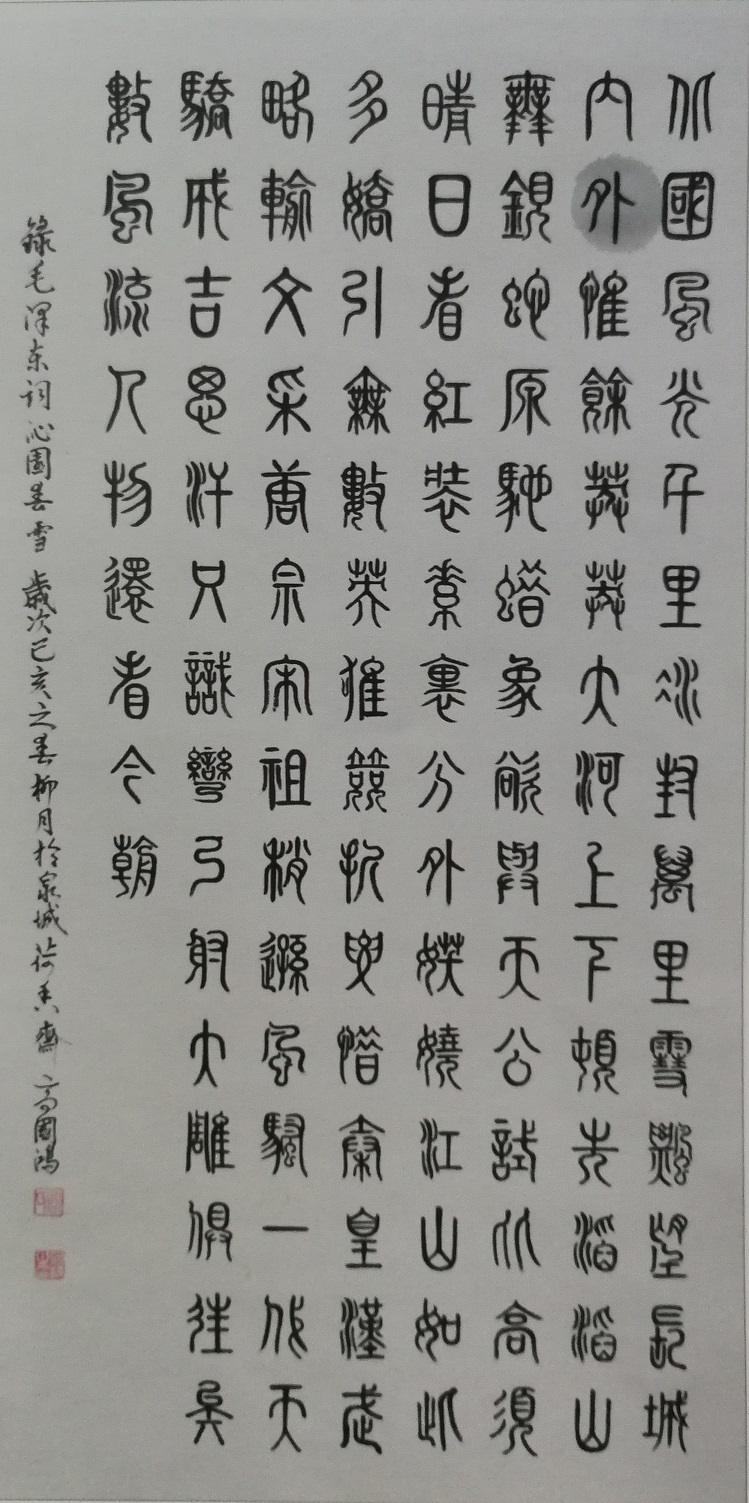 北國風光千里冰封萬里雪飄望長城
内外惟餘莽莽大河上下頓失滔滔山
舞銀蛇原馳蜡象欲與天公試比高須
晴日看紅裝素裹分外妖嬈江山如此
多嬌引無數英雄競折腰惜秦皇漢武
略輸文采唐宗宋祖稍遜風騷一代天
驕成吉思汗只識彎弓射大雕俱往矣
數風流人物還看今朝
錄毛澤东詞沁園春雪 歲次己亥之春柳月於泉城荷香齋 高國鴻